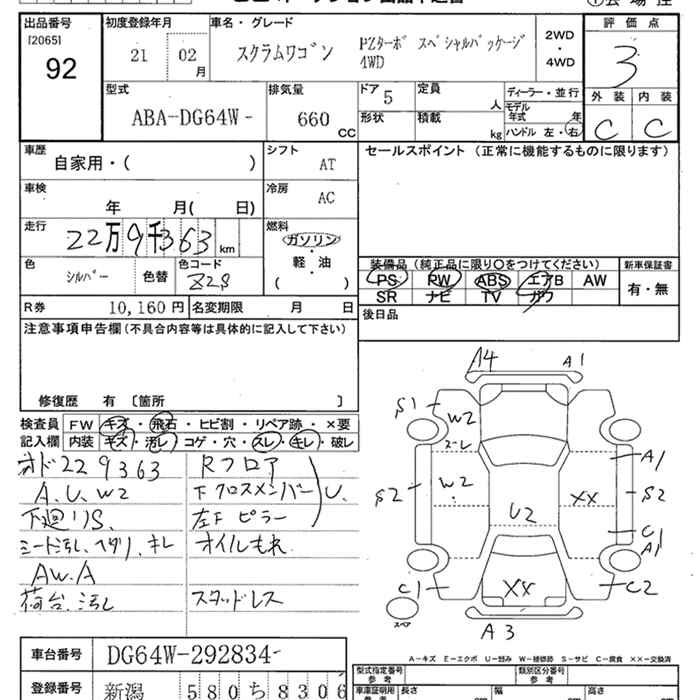 出品番号 初度登録年月 車名・グレード 評価点
[2065]
92 21 02 月 スクラムワゴン PZターボ スペシャルパッケージ 4WD 2WD・4WD 3
型式 排気量 ドア 5 定員 人 ディーラー・並行 外装 内装
ABA-DG64W- 660 CC 形状 積載 kg モデル年式 年 C C
ハンドル 左・右
車歴 自家用・( ) シフト AT セールスポイント (正常に機能するものに限ります)
車検 年 月( 日) 冷房 AC
走行 22万9千363 km 燃料 ガソリン 軽・油 ( )
色 シルバー 色替 色コード Z2S
装備品 (純正品に限り○をつけてください) 新車保証書
PS PW ABS エアB AW 有・無
SR ナビ TV カワ
R券 10,160円 名変期限 月 日 後日品
注意事項申告欄(不具合内容等は具体的に記入して下さい)
修復歴 有 〔箇所 〕
検査員 FW キズ・飛石・ヒビ割・リペア跡・×要
記入欄 内装 キズ・汚レ・コゲ・穴・スレ・キレ・破レ
オド229363 Rフロア
A.U.W2 下クロスメンバー U.
下廻りS. 左下ピラー
シート汚し、ヘタリ、キレ オイルもれ
AW.A
荷台汚し スタッドレス
A4 A1
S1 W2
ズーレ A1
S2 W2 XX S2
U2 C1
A1
C1 XX C2
スペア
A3
A-キズ E-エクボ U-凹み W-補修跡 S-サビ C-腐食 ××-交換済
車台番号 DG64W-292834- 型式指定番号 参考 類別区分番号 参考
登録番号 新潟 580 ち 8306 車庫証明用 参考 長さ 幅 高さ